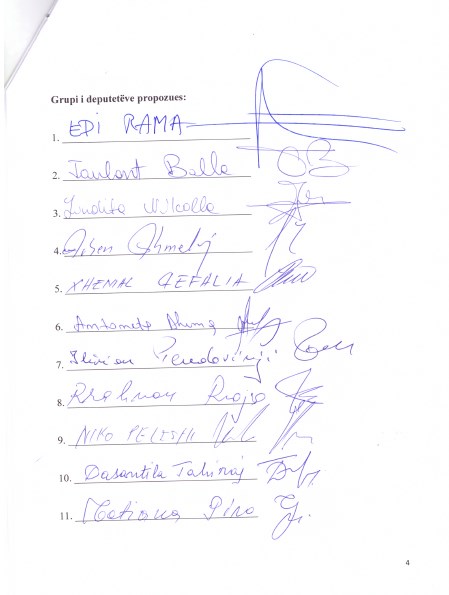 Grupi i deputetëve propozues:
1. EDI RAMA
2. Taulant Balla
3. Lindita Nikolla
4. Arben Ahmetaj
5. XHEMAL QEFALIA
6. Antoneta Dhima
7. Ilirian Pendavinji
8. Rrahman Rraja
9. NIKO PELESHI
10. Dasantila Tahiraj
11. Mationa Pino
4